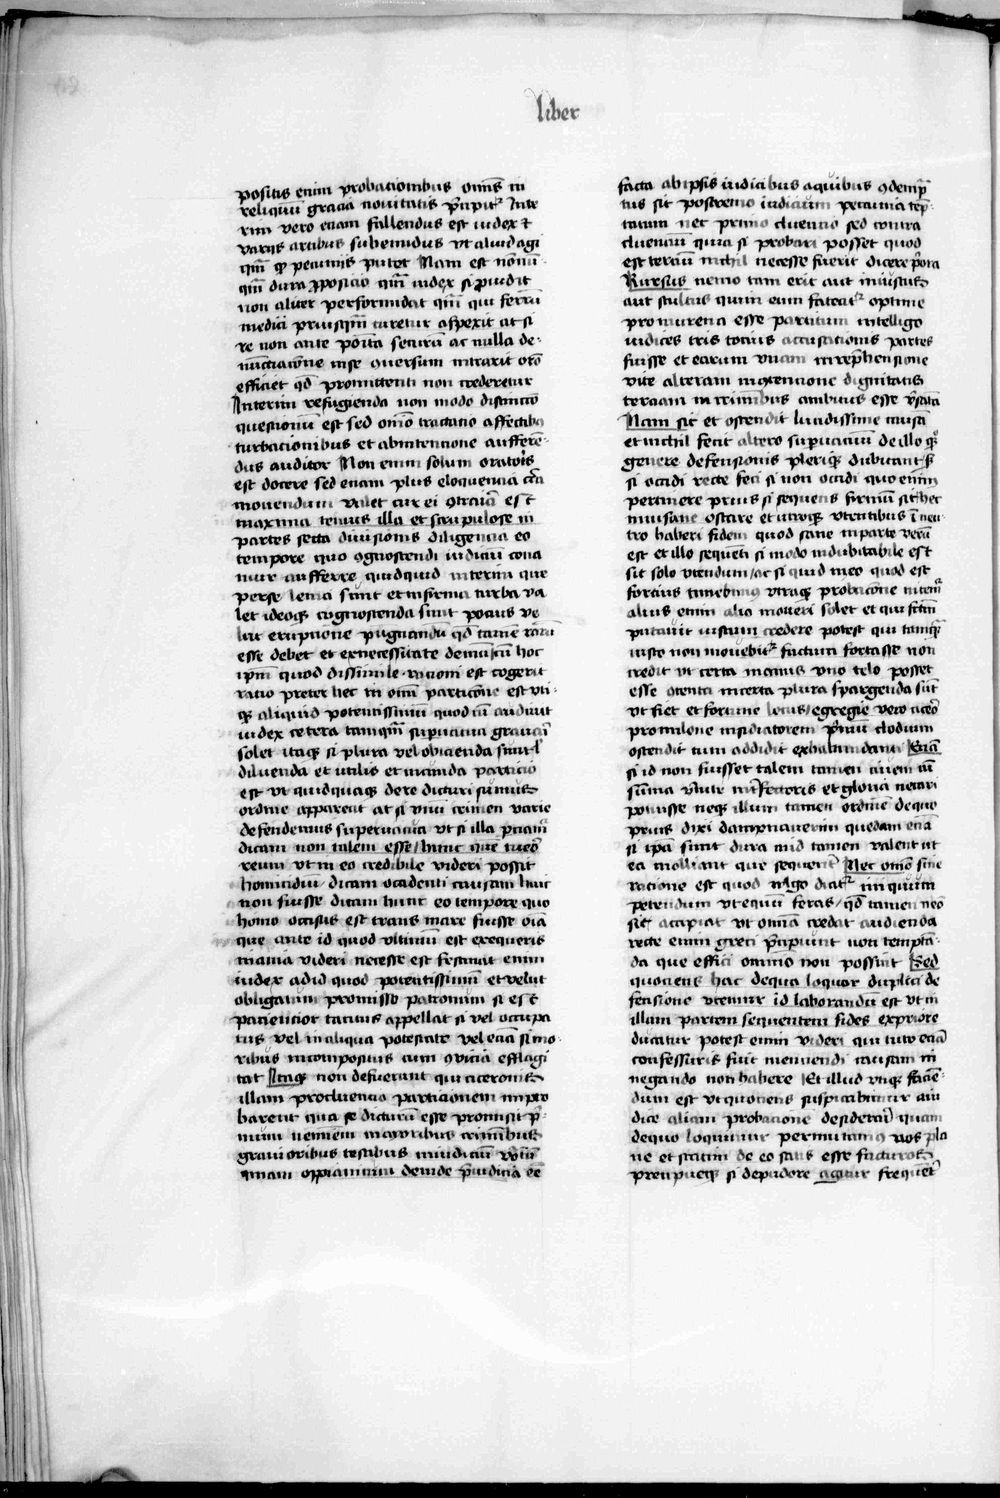 liber
positis enim probationibus om̄is in
reliquū gracia nouitatis p̄ripit᷑ Inte
rim vero eciam fallendus est iudex ⁊
varijs artibus subeundus vt aliud agi
qm̄ qͥ petimus putet Nam est nōnū-
qm̄ dura ꝓposicio qm̄ iudex si ꝓuidit
non aliter performidat qm̄ qui ferrū
medici priusqm̄ curetur aspexit at si
re non ante ꝓoīta securū ac nulla de-
nūctiacōne in se ꝯuersum intrauit oīō
efficiet qd̄ promittenti non crederetur
Interim refugienda non modo distinctō
questionū est sed om̄o tractatio affectibꝫ
turbacionibus et ab intentione aufferē-
dus auditor Non enim solum oratoris
est docere sed eciam plus eloquencia cīta
mouendum valet cui rei ꝯtrariā est
maxima tenuis illa et scrupulose in
partes secta diuisionis diligencia eo
tempore quo ꝯgnoscendi iudiciū cona
mur aufferre quidquid interim que
per se leuia sunt et infirma turba va
let ideoqꝫ cōgnoscenda sunt pocius ve
lut erupcione pugnandū qd̄ tamē rarū
esse debet et ex necessitate demū cū hoc
ip̄m quod dissimile racioni est cogerit
ratio preter hec in om̄i particōne est vti-
qꝫ aliquid potentissimū quod cū audiuit
iudex cetera tamqm̄ superuacua grauari
solet itaqꝫ si plura vel obicienda sunt l̄
diluenda et vtilis et iucunda particio
est vt quidquaqꝫ de re dicturi sumus
ordine appareat at si vnū crimen varie
defendemus superuacua vt si illa pciamr̄
dicam non talem esse hunc quē tueor
reum vt in eo credibile videri possit
homicidiū dicam occidenti causam huic
non fuisse dicam hunc eo tempore quo
homo occisus est trans mare fuisse oīa
que ante id quod vltimū est exequeris
inania videri necesse est festinat enim
iudex ad id quod potentissimū et velut
obligatum promisso patronum si est
paciencior tacitus appellat si vel occupa
tus vel in aliqua potestate vel eciā si mo-
ribus incompositus cum ꝯuicia efflagi
tat Itaqꝫ non defuerunt qui ciceronis
illam pro cluencio particionem impro
barent qua se dicturū esse promisit p̄-
mum neminem maioribus criminibus
grauioribus testibus in iudiciū vocatū
quam oppianicum deinde p̄iudicia eē
facta ab ipsis iudicibus a quibus ꝯdemp̄
tus sit postremo iudicium pecunia tēp-
tatum nec primo cluencio sed contra
cluenciū quia si probari posset quod
est terciū nichil necesse fuerit dicere pͥora
Rursus nemo tam erit aut iniustus
aut stultus quin eum fateat᷑ optime
pro murena esse partitum intelligo
iudices tris tocius accusacionis partes
fuisse et earum vnam in rep̄hensione
vite alteram in ꝯtencione dignitatis
terciam in criminibus ambitus esse v̄sata
Nam sic et ostendit lucidissime causā
et nichil fecit altero superuacuū de illo qͦqꝫ
genere defensionis pleriqꝫ dubitant s̄
si occidi recte feci si non occidi quo enim
pertinere prius si sequens firmū sit hec
inuisane ostare et vtroqꝫ vtentibus ī neu
tro haberi fidem quod sane in parte verū
est et illo sequēti si modo indubitabile est
sit solo vtendum / ac si quid meo quod est
forcius timebimꝯ vtraqꝫ probacōne nitemᷓ
alius enim alio moueri solet et qui fc̄m
putauit iustum credere potest qui tamqᷓ
iusto non mouebit᷑ factum fortasse non
credit vt certa manus vno telo posset
esse ꝯtenta incerta plura spargenda sūt
vt fiet et fortune locus / egregie vero cicero
pro milone insidiatorem p̄mū clodium
ostendit tum addidit ex habundanti Eciā
si id non fuisset talem tamen ciuem cū
sūma v̄tute int̄fectoris et gloria necari
potuisse neqꝫ illum tamen ordinē de quo
prius dixi dampnauerim quedam eciā
si ip̄a sunt dura in id tamen valent vt
ea molliant que sequent᷑ Nec om̄o sine
racione est quod vl̄go dicat᷑ iniquum
petendum vt equū feras / qd̄ tamen neo
sic accipiat vt omīa credat audienda
recte enim greci p̄cipiunt non tempta-
da que effici om̄ino non possint Sed
quociens hac de qua loquor duplici de
fensione vtemur id laborandū est vt in
illam partem sequentem fides ex priore
ducatur potest enim videri qui tuto eciā
confessurus fuit menciendi causam in
negando non habere Et illud vtiqꝫ faciē-
dum est vt quociens suspicabimur a iu
dice aliam probacione desiderari quam
de quo loquimur permutamꝯ nos pla
ne et statim de eo satis esse facturos
precipueqꝫ si de pudore agitur frequēt᷑